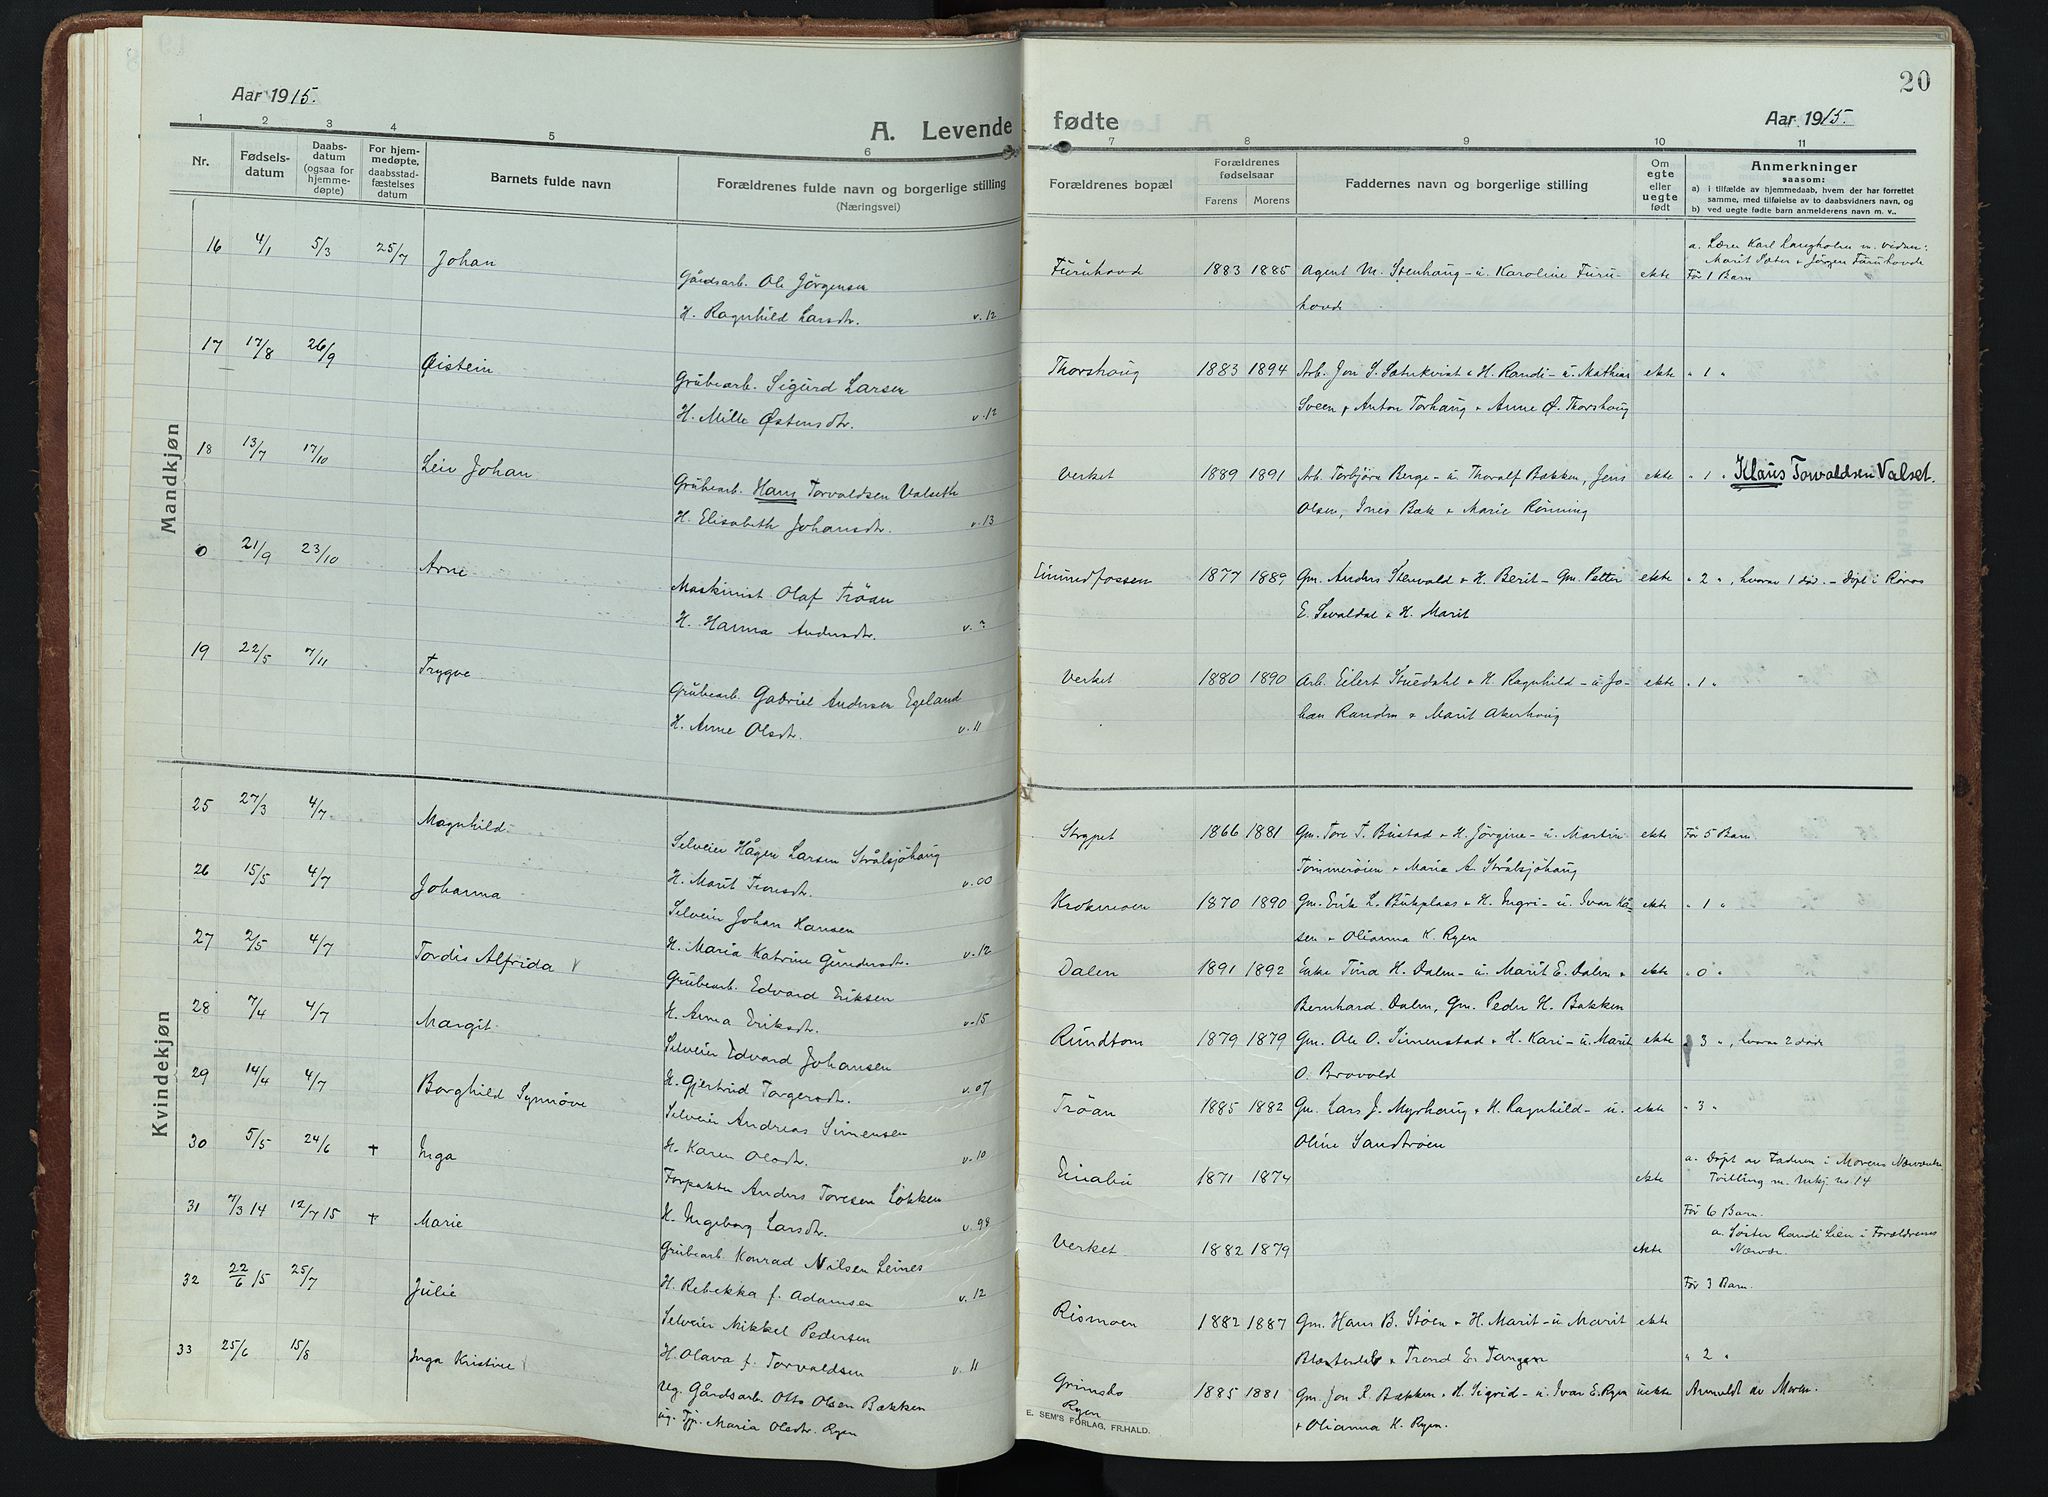 20
Aar 1915.
A. Levende
fødte
Aar 1915.
1 2 3 4 5 6 7 8 9 10 11
Nr.
Fødsels-
datum
Daabs-
datum
(ogsaa for
hjemme-
døpte)
For hjem-
medøpte,
daabsstad-
fæstelses
datum
Barnets fulde navn
Forældrenes fulde navn og borgerlige stilling
(Næringsvei)
Forældrenes bopæl
Forældrenes
fødselsaar
Farens Morens
Faddernes navn og borgerlige stilling
Om
egte
eller
uegte
født
Anmerkninger
saasom:
a) i tilfælde av hjemmedaab, hvem der har forrettet
samme, med tilføielse av to daabsvidners navn, og
b) ved uegte fødte barn anmelderens navn m. v..
Mandkjøn
16 4/1 5/3 25/7 Johan
Gårdsarb. Ole Jörgensen
H. Ragnhild Larsdtr. v. 12
Furuhovd 1883 1885 Agent M. Stenhaug - u. Karoline Furu
hovde
ekte
a. Lærer Karl Langholm m. vidner:
Marit Sæter & Jörgen Furuhovde
Før 1 Barn
17 17/8 26/9 Øistein
Grubearb. Sigurd Larsen
H. Mille Østensdtr. v. 12
Thorshaug 1883 1894 Arb. Jon S. Säterkvist & H. Randi - u. Mathias
Sveen & Anton Torhaug & Anne Ø. Thorshaug
ekte " 1 "
18 13/7 17/10 Leiv Johan
Grubearb. Hans Torvaldsen Valseth
H. Elisabeth Johansdtr. v. 13
Verket 1889 1891 Arb. Torbjörn Berge - u. Thoralf Bækken, Jens
Olsen, Ines Bak & Marie Rönning
ekte " 1 " Klaus Torvaldsen Valset.
0 21/9 23/10 Arne
Maskinist Olaf Tröan
H. Hanna Andersdtr. v. ?
Einundfossen 1877 1889 Gm. Anders Stenvold & H. Berit - Gm. Petter
E. Sevaldal & H. Marit
ekte " 2 ", hvorav 1 död. - Döpt i Röros
19 22/5 7/11 Trygve
Grubearb. Gabriel Andersen Egeland
H. Anne Olsdtr. v. 11
Verket 1880 1890 Arb. Eilert Stuedahl & H. Ragnhild - u. Jo-
han Randen & Marit Akerhaug
ekte " 1 "
Kvindekjøn
25 27/3 4/7 Magnhild
Selveier Hågen Larsen Strålsjöhaug
H. Marit Tronsdtr. v. 00
Strypet 1866 1881 Gm. Tore T. Bustad & H. Jörgine - u. Martin
Tömmeröien & Maria A. Strålsjöhaug
ekte Før 5 Barn
26 15/5 4/7 Johanna
Selveier Johan Hansen
H. Maria Katrine Gundersdtr. v. 12
Krokmoen 1870 1890 Gm. Erik L. Bukplass & H. Ingri - u. Ivar Kå-
sen & Olianna K. Ryen
ekte " 1 "
27 2/5 4/7 Tordis Alfrida
Grubearb. Edvard Eriksen
H. Anna Eriksdtr. v. 15
Dalen 1891 1892 Enke Tina H. Dalen - u. Marit E. Dalen &
Bernhard Dalen, Gm. Peder H. Bakken
ekte " 0 "
28 7/4 4/7 Margit
Selveier Edvard Johansen
H. Gjertrud Torgersdtr. v. 07
Rundtom 1879 1879 Gm. Ole O. Simenstad & H. Kari - u. Marit
O. Brovold
ekte " 3 ", hvorav 2 döde
29 14/4 4/7 Borghild Synnöve
Selveier Andreas Simensen
H. Karen Olsdtr. v. 10
Tröan 1885 1882 Gm. Lars J. Myrhaug & H. Ragnhild - u.
Oline Sandtröen
ekte " 3 "
30 5/5 24/6 + Inga
Forpakter Anders Toresen Lökken
H. Ingeborg Larsdtr. v. 98
Einabu 1871 1874 ekte
a. Döpt av Faderen i Morens Nærværelse
Tvilling m. Mkj. no. 14
Før 6 Barn.
31 7/3 14 12/7 15 + Marie
Grubearb. Konrad Nilsen Leines
H. Rebekka f. Adamsen v. 12
Verket 1882 1879 ekte
a. Søster Randi Lien i Forældrenes
Nærvær.
Før 3 Barn.
32 22/6 15 25/7 Julie
Selveier Mikkel Pedersen
H. Olava f. Torvaldsen v. 11
Rismoen 1882 1887 Gm. Hans B. Stöen & H. Marit - u. Marit
Blæsterdal & Trond E. Tangen
ekte " 2 "
33 25/6 15/8 Inga Kristine
Ug. Gårdsarb. Otto Olsen Bækken
ug. Tjp. Maria Olsdtr. Ryen
Grimsbo
Ryen
1885 1881 Gm. Jon R. Bækken & H. Sigrid - u. Ivar E. Ryen
& Olianna H. Ryen.
uekte Anmeldt av Moren.
E. SEM'S FORLAG, FR.HALD.